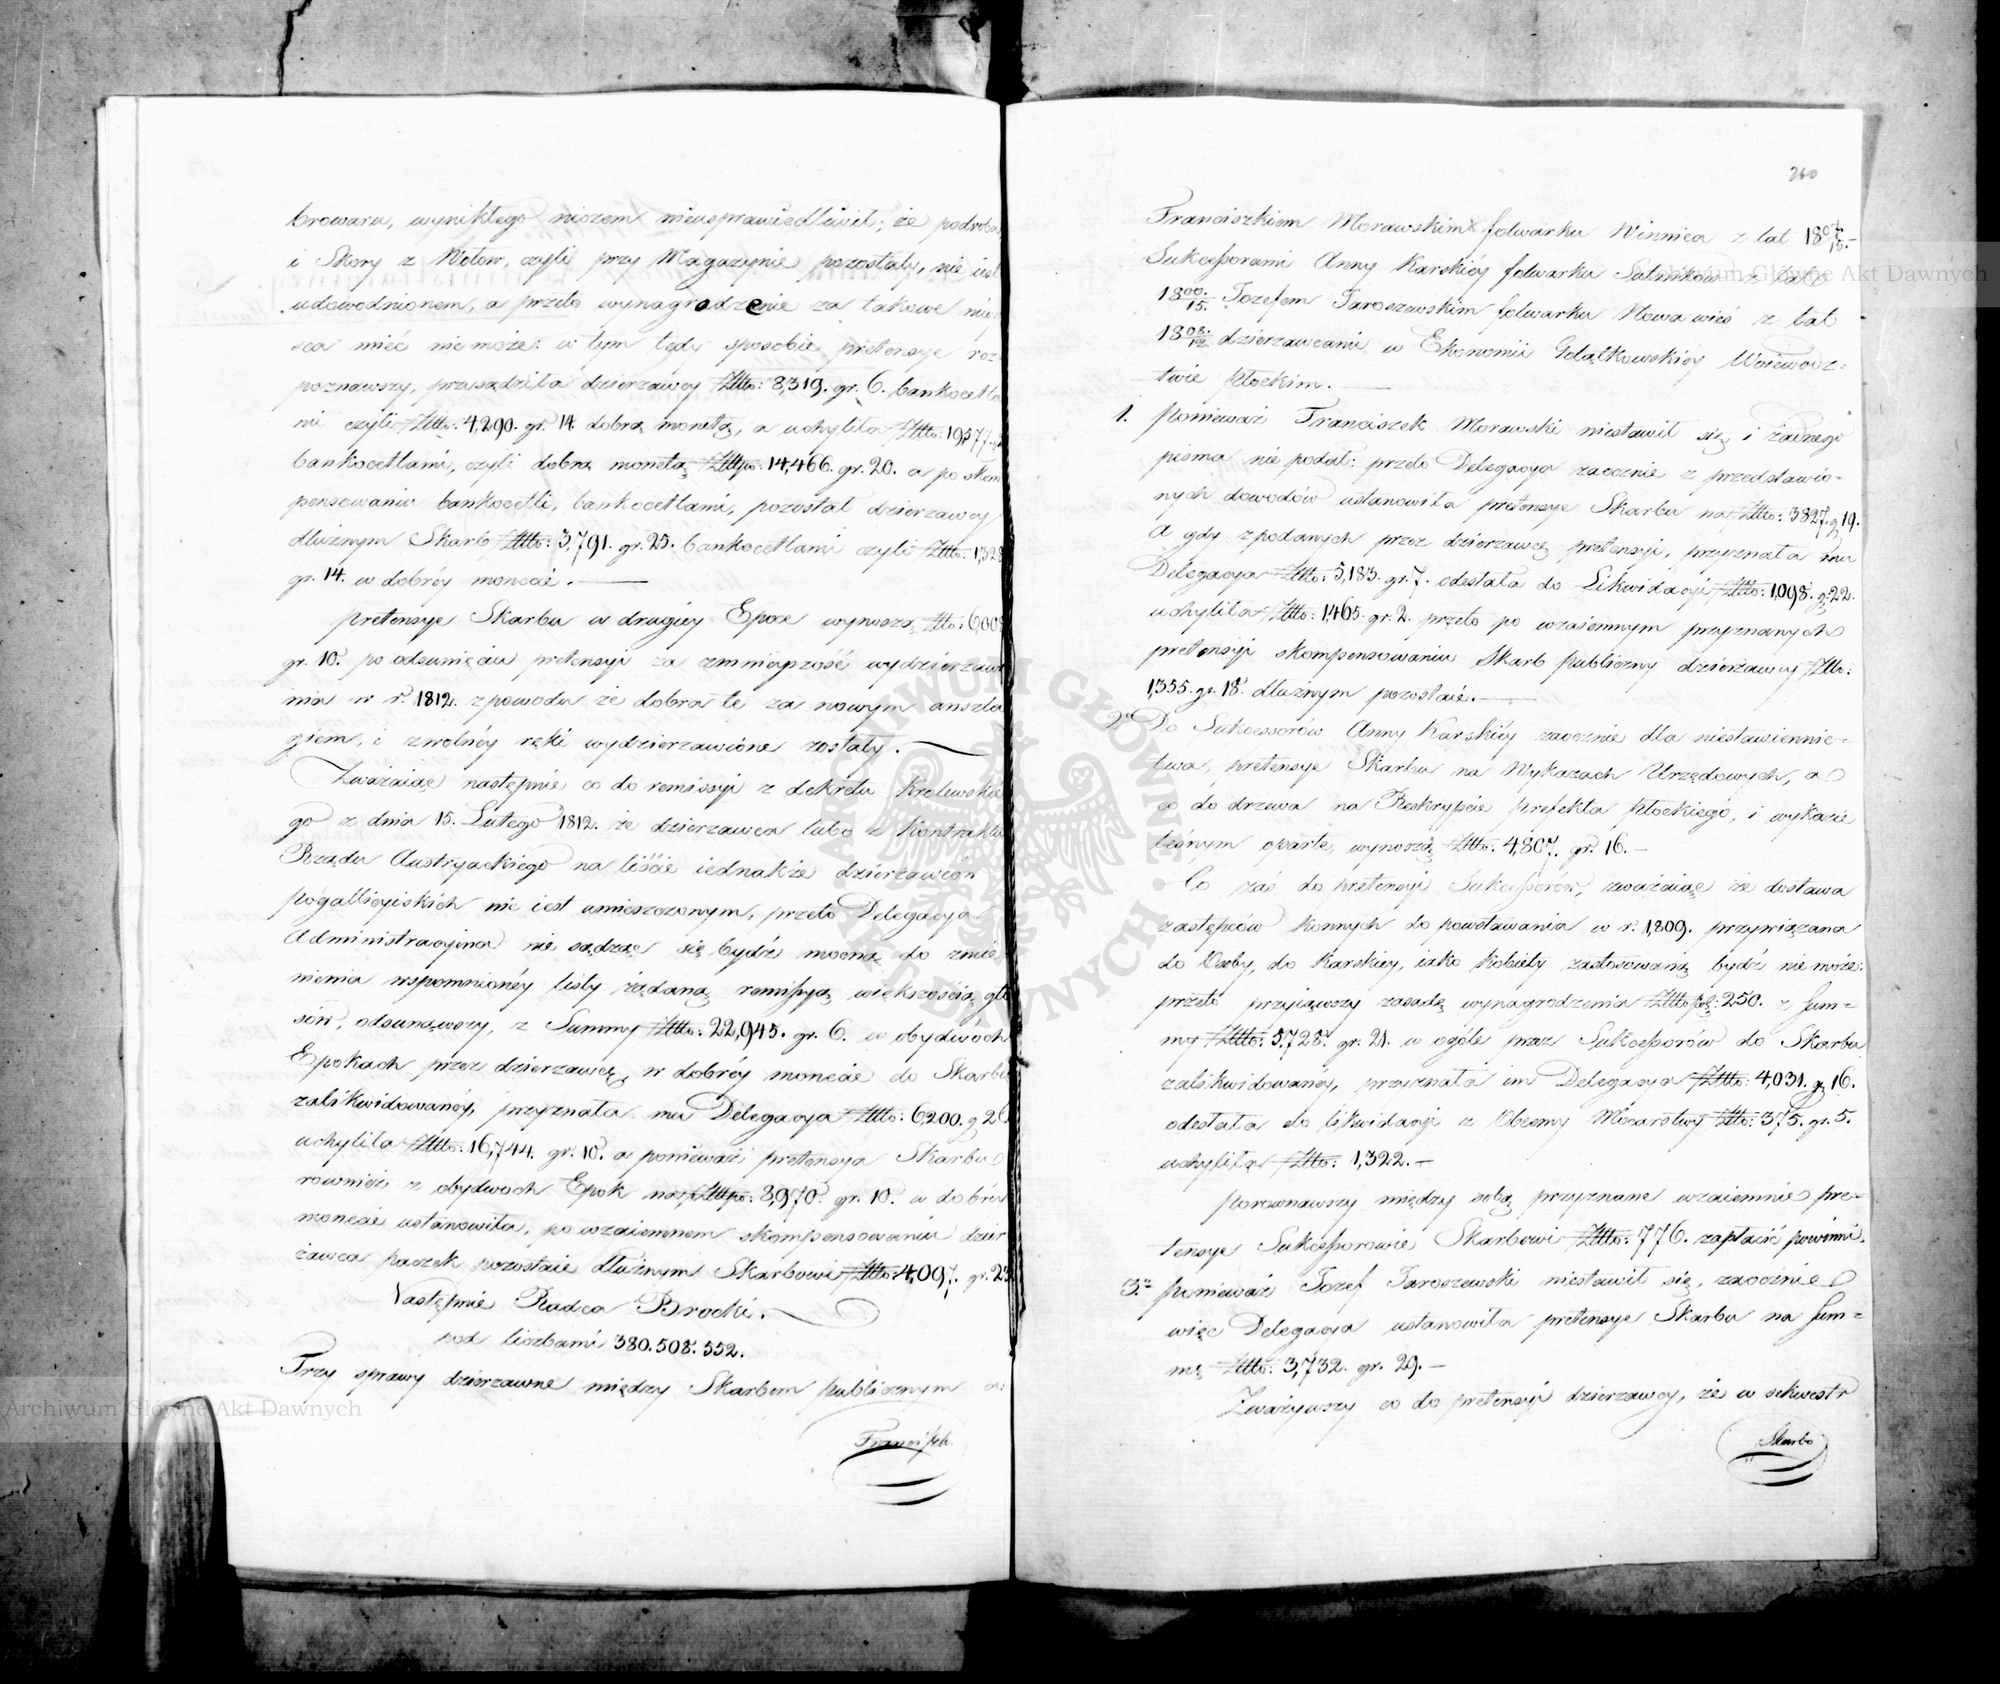 browaru, wyniktego niczem nieusprawiedliwił; że podroba
i Skory z Wołow, czyli przy Magazynie pozostały, nie iest
udowodnionem, a przeto wynagrodzenie za takowe miey
sca mieć nie może: w tym tedy sposobie pretensye roz
poznawszy, przysądziła dzierżawcy Złto: 8,319. gr. 6. bankocetla
mi czyli Złto: 4,290. gr. 14. dobrą monetą, a uchyliła Złto: 19,577.
bankocetlami, czyli dobrą monetą Złtpo: 14,466. gr. 20. a po skom
pensowaniu bankocetli, bankocetlami, pozostał dzierzawcy
dłużnym Skarb Złto: 3,791. gr. 25. bankocetlami czyli Złto: 1,328
gr. 14. w dobréy monecie.
pretensye Skarbu w drugiey Epoce wynoszą Złto: 6,00
gr. 10. po odsunięciu pretensyi za zmnieyszość wydzierzawie
nia w r. 1812. z powodu że dobra te za nowym anszla
giem, i z wolnéy ręki wydzierzawione zostały.
Zważaiąc następnie co do remissyi z dekretu Krolewskie
go z dnia 15. Lutego 1812. że dzierzawca lubo z Kontraktu
Rządu Austryackiego na liście iednakże dzierzawców
pogallicyiskich nie iest umieszczonym, przeto Delegacya
Administracyina nie sądząc się bydź mocną do zmie
nienia wspomnionéy listy żądaną remissyą większością gło
sów, odsunąwszy, z Summy Złto: 22,945. gr. 6. w obydwóch
Epokach przez dzierzawcę w dobréy monecie do Skarbu
zalikwidowanéy, przyznała mu Delegacya Złto: 6,200. g. 26
uchyliła Złto: 16,744. gr. 10. a ponieważ pretensya Skarbu
rownież z obydwoch Epok na Złtpo: 8,970. gr. 10. w dobréy
monecie ustanowiła, po wzaiemnem skompensowaniu dzier
żawca pozostaie dłużnym Skarbowi Złto: 4,097. gr. 2
Następnie Radca Brocki.
pod liczbami 380. 508. 552.
Trzy sprawy dzierzawne między Skarbem publicznym a
Francisch.
260
Franciszkiem Morawskim folwarku Winnica z lat 18 07/15.
Sukcessorami Anny Karskiéy folwarku z lat
18 00/15. Jozefem Jaroszewskim folwarku Nowa wieś z lat
18 08/12. dzierzawcami w Ekonomii Wojewodz:
twie Płockim.
1. Ponieważ Franciszek Morawski niestawił się i żadnego
pisma nie podał: przeto Delegacya zaocznie z przedstawio-
nych dowodów ustanowiła pretensye Skarbu na Złto: 3827. g. 19.
A gdy z podanych przez dzierzawcę pretensyi, przyznała mu
Delegacya Złto: 5,183. gr. 7. odesłała do Likwidacyi Złto: 1,098. g. 22.
uchyliła Złto: 1,465. gr. 2. przeto po wzaiemnym przyznanych
pretensyi skompensowaniu Skarb publiczny dzierżawcy Złto:
1,355. gr. 18. dłużnym pozostaie.
2. Do Sukcessorów Anny Karskiéy zaocznie dla niestawiennic-
twa, pretensye Skarbu na Wykazach Urzędowych, a
co do drzewa na Reskrypcie Prefekta Płockiego, i wykazie
leśnym oparte, wynoszą Złto: 4,807. gr. 16.
Co zaś do pretensyi Sukcessorów, zważaiąc że dostawa
zastępców konnych do powstawania w r. 1,809. przywiązana
do Osoby, do Karskiey, iako Kobiety zastosowaną bydź nie może:
przeto przyiąwszy zasadę wynagrodzenia Złto pol: 250. z Sum=
my Złto: 5,728. gr. 21. w ogóle przez Sukcessorów do Skarbu
zalikwidowanéy, przyznała im Delegacya Złto: 4,031. g. 16.
odesłała do likwidacyi z Obcemy Mocarstwy Złto: 375. gr. 5.
uchyliła Złto: 1,322.
Porównawszy między sobą przyznane wzaiemnie pre-
tensye Sukcessorowie Skarbowi Złto: 776. zapłacić powinni.
3. Ponieważ Jozef Jaroszewski niestawił się, zaocznie
więc Delegacya ustanowiła pretensye Skarbu na Sum=
mę Złto: 3,732. gr. 29.
Zważywszy co do pretensyi dzierżawcy, że w sekwestr
Skarbo
Archiwum Główne Akt Dawnych
Archiwum Główne Akt Dawnych
ARCHIWUM GŁÓWNE AKT DAWNYCH